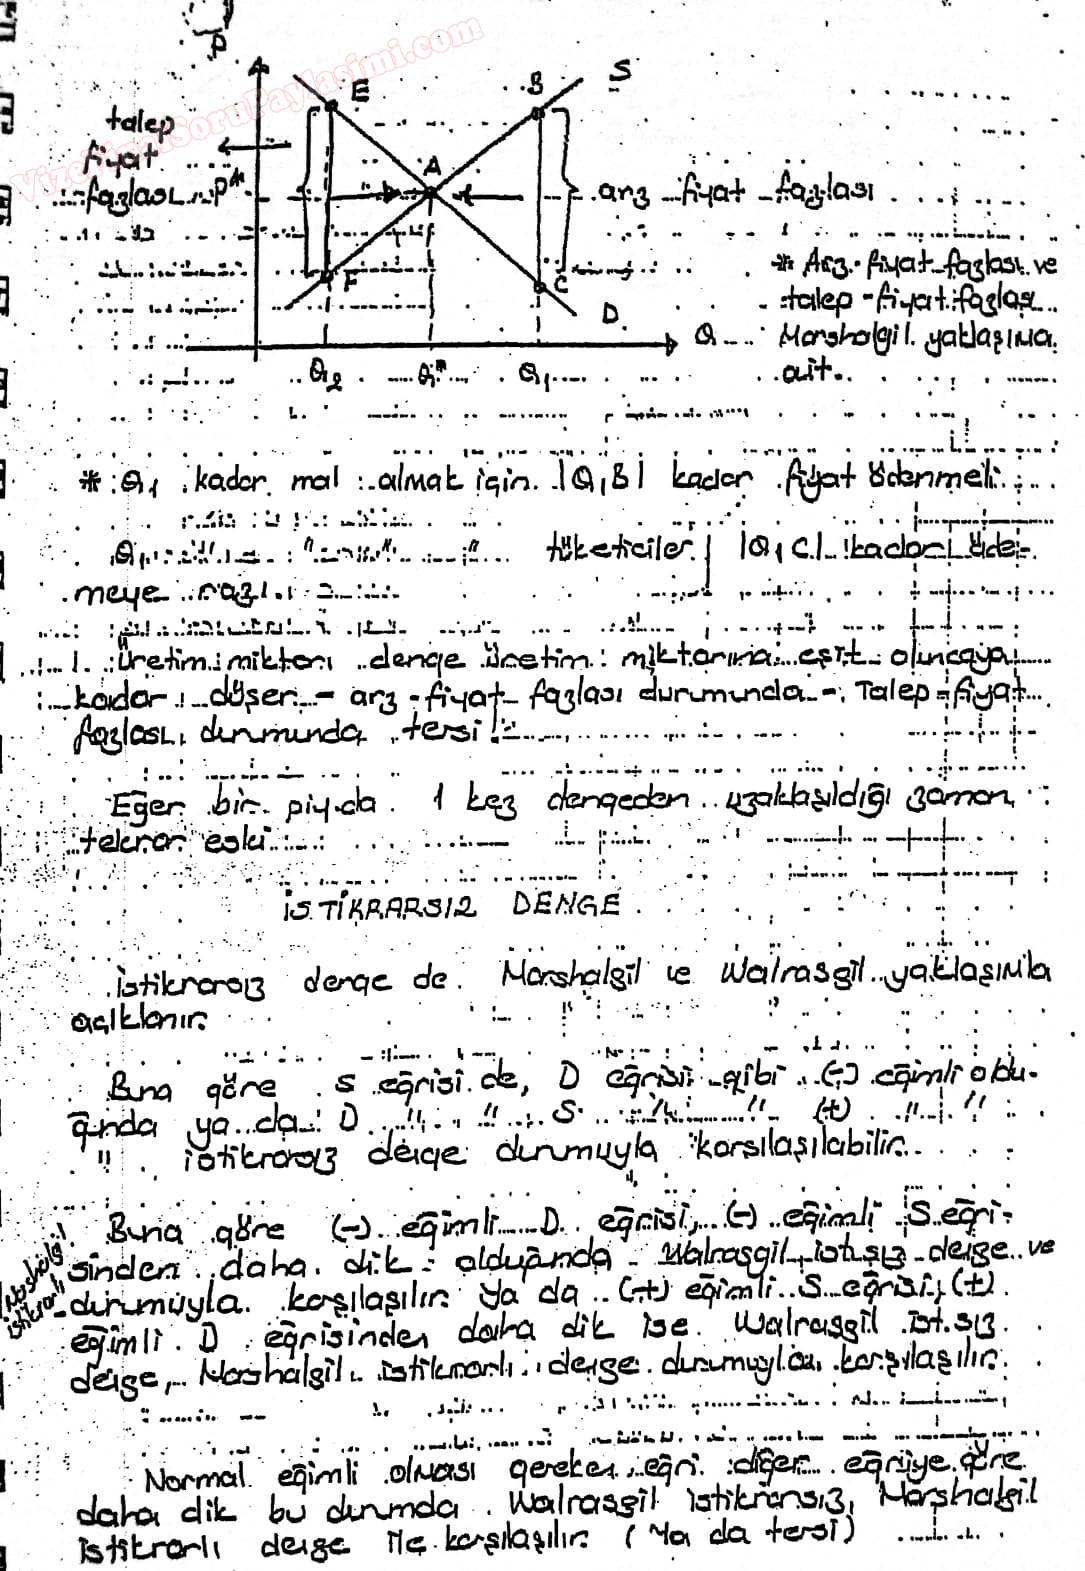 VizeFinalSoruPaylasimi.com
P
E
B
S
talep
fiyat
fazlası
P*
A
arz fiyat fazlası
F
C
D
* Arz-fiyat fazlası ve
talep-fiyat fazlası
Marshalgil yaklaşıma
ait.
Q
Q2
Q*
Q1
* Q1 kadar mal almak için |Q1B| kadar fiyat ödenmeli
Q1 " " " tüketiciler |Q1C| kadar öde-
meye razı.
Üretim miktarı denge üretim miktarına eşit oluncaya
kadar düşer - arz-fiyat fazlası durumunda - Talep-fiyat
fazlası durumunda tersi!
Eğer bir piy.da 1 kez dengeden uzaklaşıldığı zaman
tekrar eski
İSTİKRARSIZ DENGE
İstikrarsız denge de Marshalgil ve Walrasgil yaklaşımla
açıklanır.
Buna göre S eğrisi de, D eğrisi gibi (-) eğimli oldu-
ğunda ya da D " " S " " (+) " "
" istikrarsız denge durumuyla karşılaşılabilir.
Buna göre (-) eğimli D eğrisi, (-) eğimli S eğri-
sinden daha dik olduğunda Walrasgil ist.sız denge ve
Marshalgil
istikrarlı
durumuyla karşılaşılır. Ya da (+) eğimli S eğrisi, (+)
eğimli D eğrisinden daha dik ise Walrasgil ist.sız
denge, Marshalgil istikrarlı denge durumuyla karşılaşılır.
Normal eğimli olması gereken eğri diğer eğriye göre
daha dik bu durumda Walrasgil istikrarsız, Marshalgil
istikrarlı denge ile karşılaşılır. (Ya da tersi)